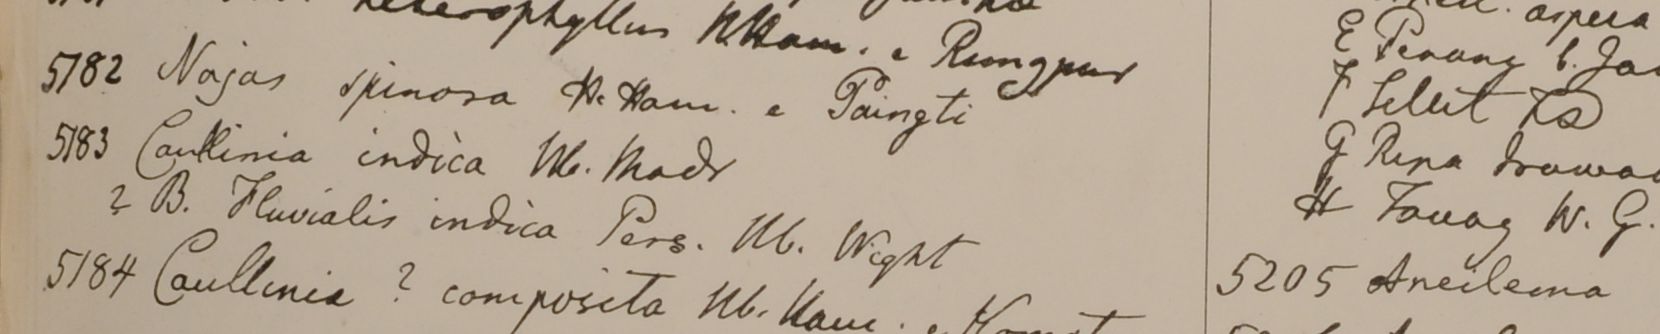 heterophyllus H. Ham. e Rungpur
5182 Najas spinosa H. Ham. e Paingti
5183 Caulinia indica Hb. Madr
? B. Fluvialis indica Pers. Hb. Wight
5184 Caullinia ? composita Hb. Ham. e
aspera
E Penang
F Sillet
G Ripa
H Tavoy W. G.
5205 Aneilema